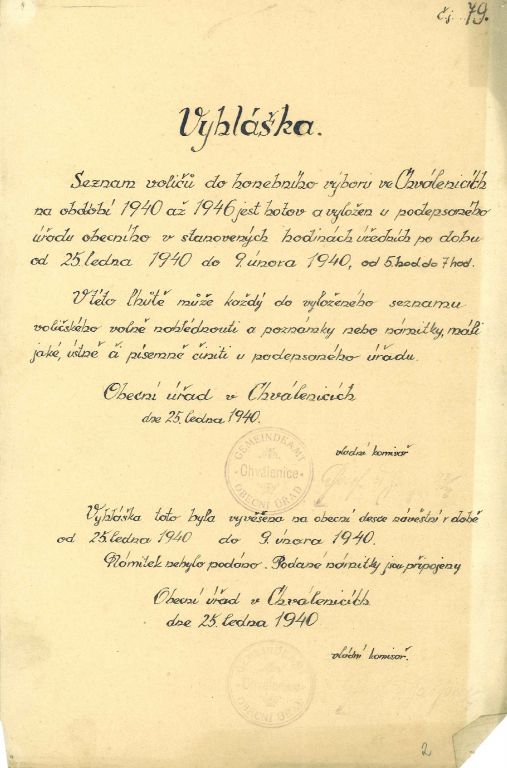 čj. 79.
Vyhláška.
Seznam voličů do honebního výboru ve Chválenicích
na období 1940 až 1946 jest hotov a vyložen u podepsaného
úřadu obecního v stanovených hodinách úředních po dobu
od 25. ledna 1940 do 9. února 1940, od 5. hod. do 7 hod.
V této lhůtě může každý do vyloženého seznamu
voličského volně nahlédnouti a poznámky nebo námitky, máli
jaké, ústně či písemně činiti u podepsaného úřadu.
Obecní úřad v Chválenicích
dne 25. ledna 1940.
vládní komisař
GEMEINDEAMT
Chválenice
OBECNÍ ÚŘAD
Vyhláška tato byla vyvěšena na obecní desce návěstní v době
od 25. ledna 1940 do 9. února 1940.
Námitek nebylo podáno. Podané námitky jsou připojeny
Obecní úřad v Chválenicích
dne 25. ledna 1940
vládní komisař.
GEMEINDEAMT
Chválenice
OBECNÍ ÚŘAD
2